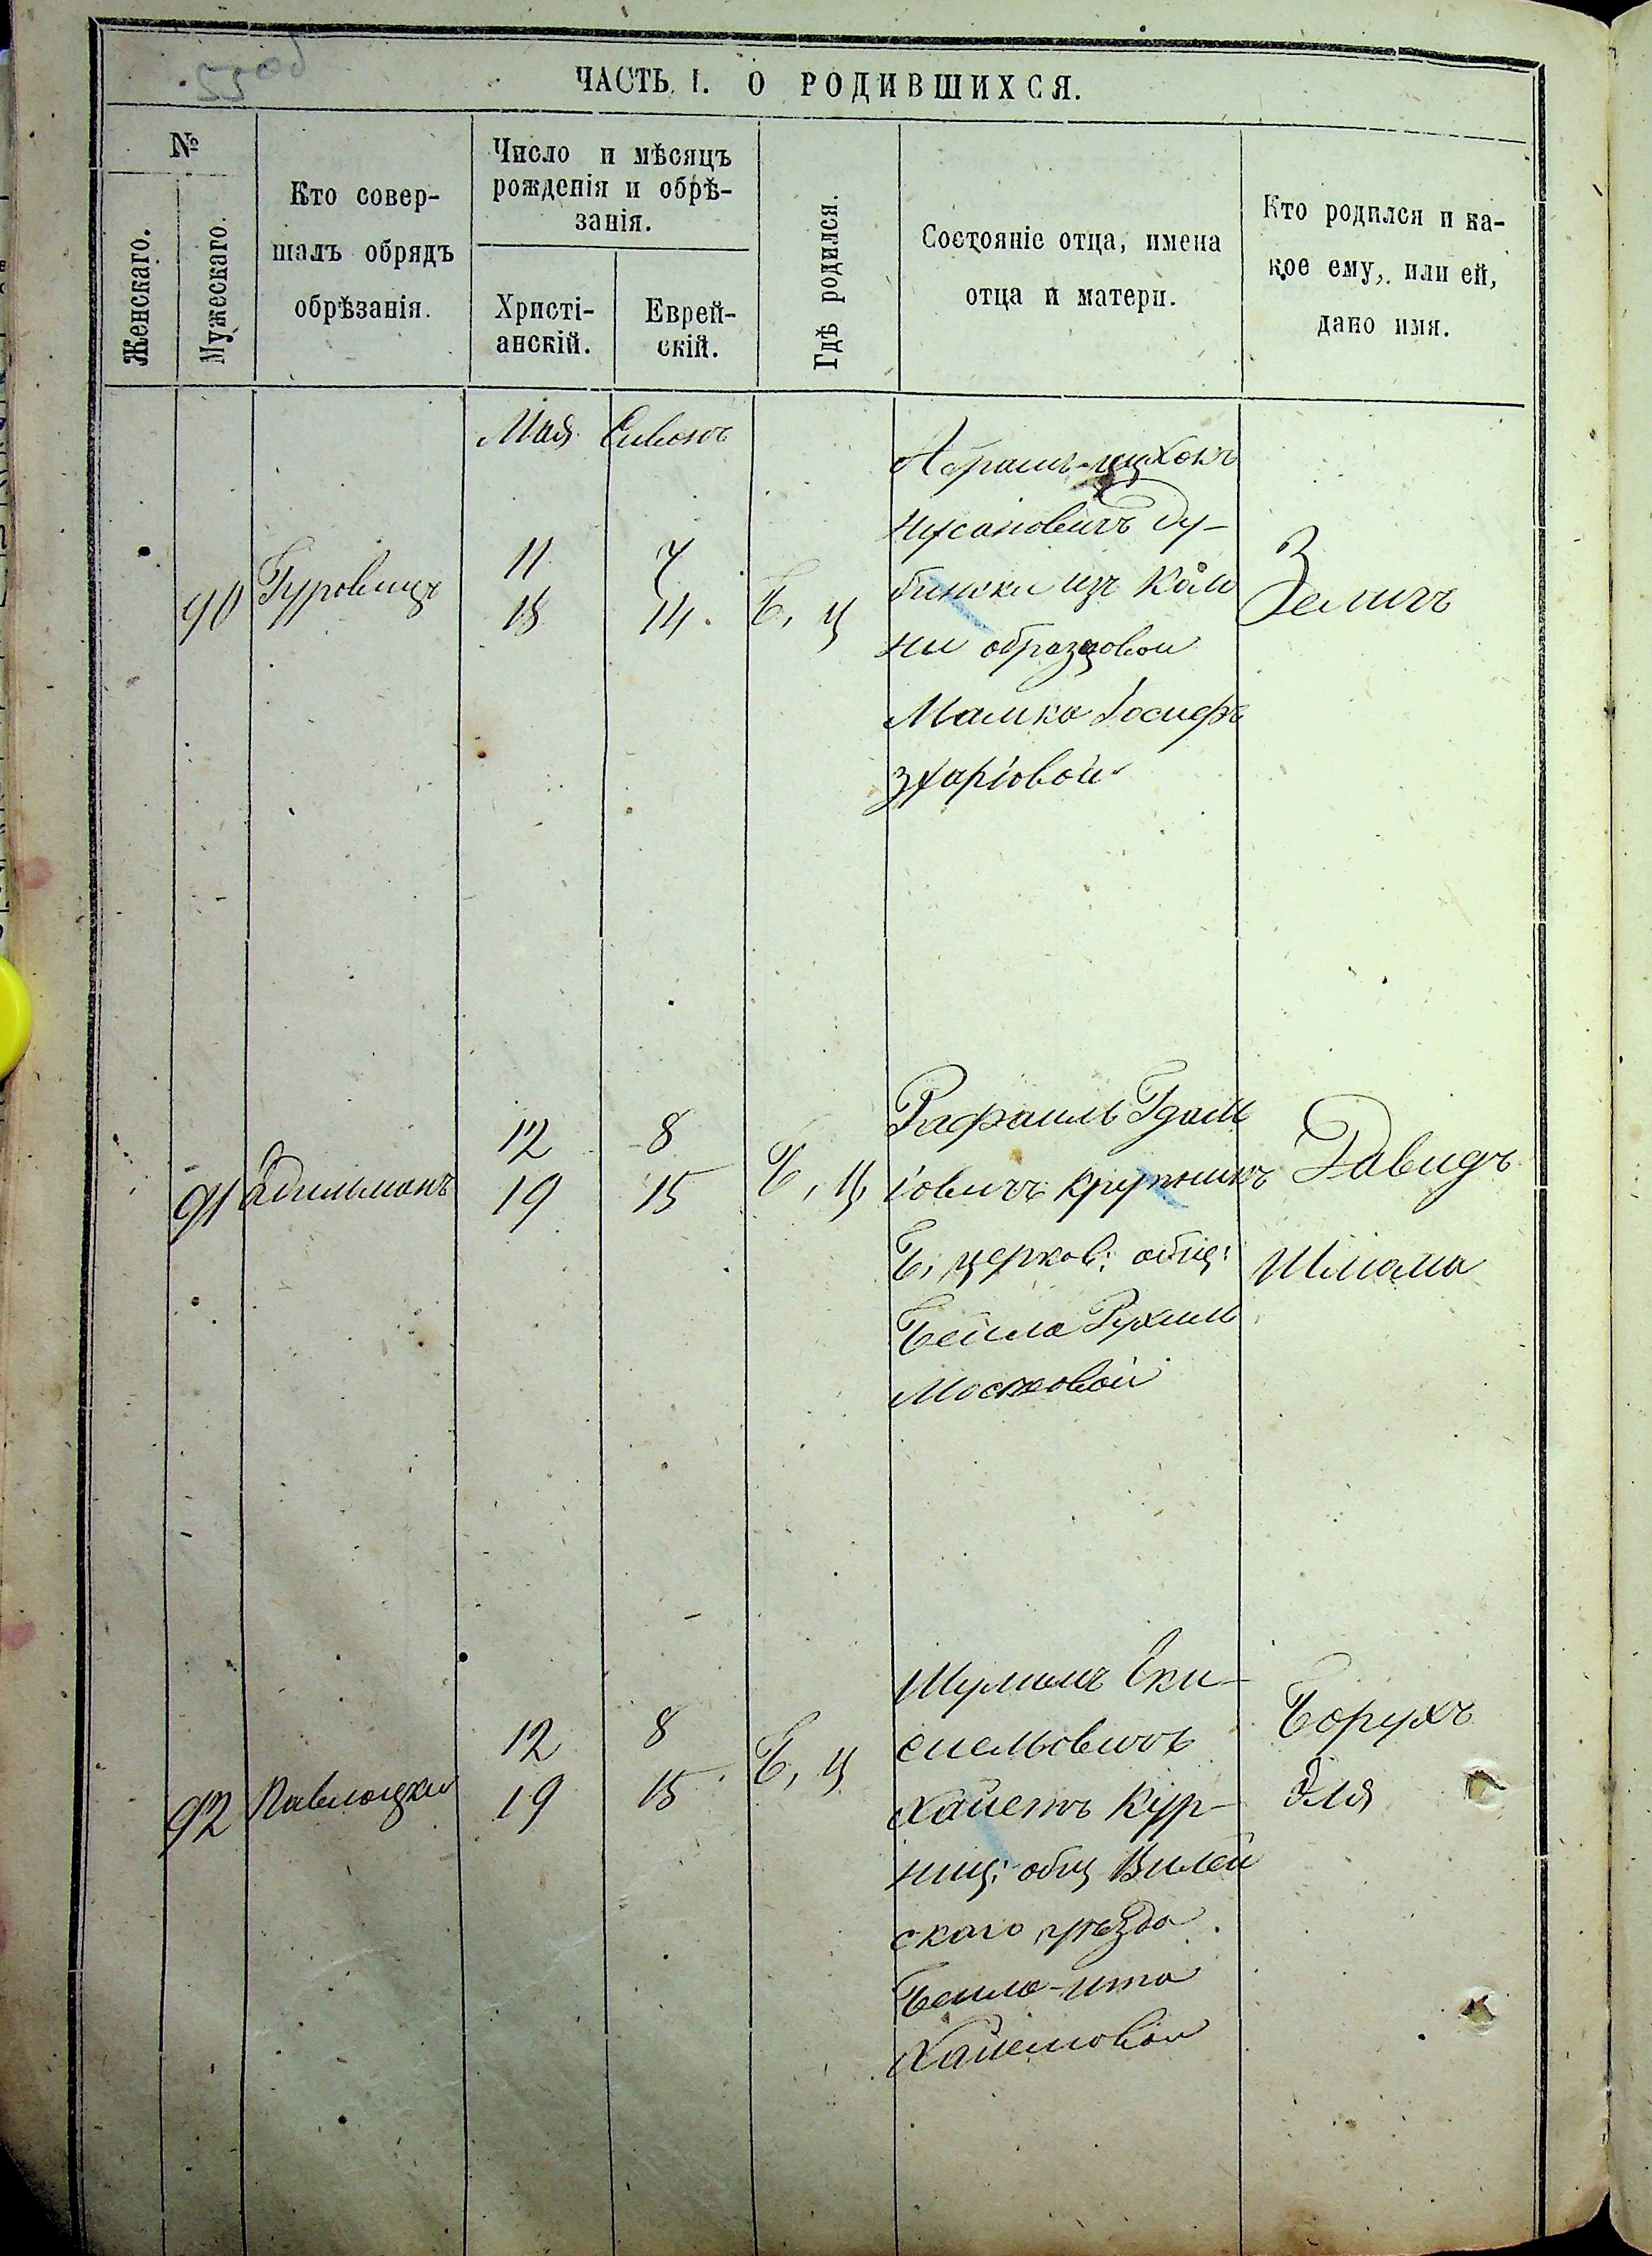 55 об
ЧАСТЬ I. О РОДИВШИХСЯ.
№
Женскаго.
Мужескаго.
Кто совер-
шалъ обрядъ
обрѣзанія.
Число и мѣсяцъ
рожденія и обрѣ-
занія.
Христі-
анскій.
Еврей-
скій.
Гдѣ родился.
Состояніе отца, имена
отца и матери.
Кто родился и ка-
кое ему, или ей,
дано имя.
Мая Сивонъ
90 Гуровицъ
11 7
18 14
Б, ц
Абрамъ-Ицхокъ
Нусоновичъ Ду-
бински изъ Коло
ни образцовой
Малка Іосифъ
Зелигъ
91 Эдильманъ
12 8
19 15
Б, ц
Рафаилъ Гдаль
іовичъ Крупникъ
Б, церков: общ:
Бейла Рухиль
Мосткова
Давидъ
Шліома
92 Павлоцки
12 8
19 15
Б, ц
Шумель Еки-
сіельовичъ
Хайетъ Кур-
ниц: общ Вилей
скаго уѣзда
Бейла-Ита
Хаиемовой
Борухъ
Эля